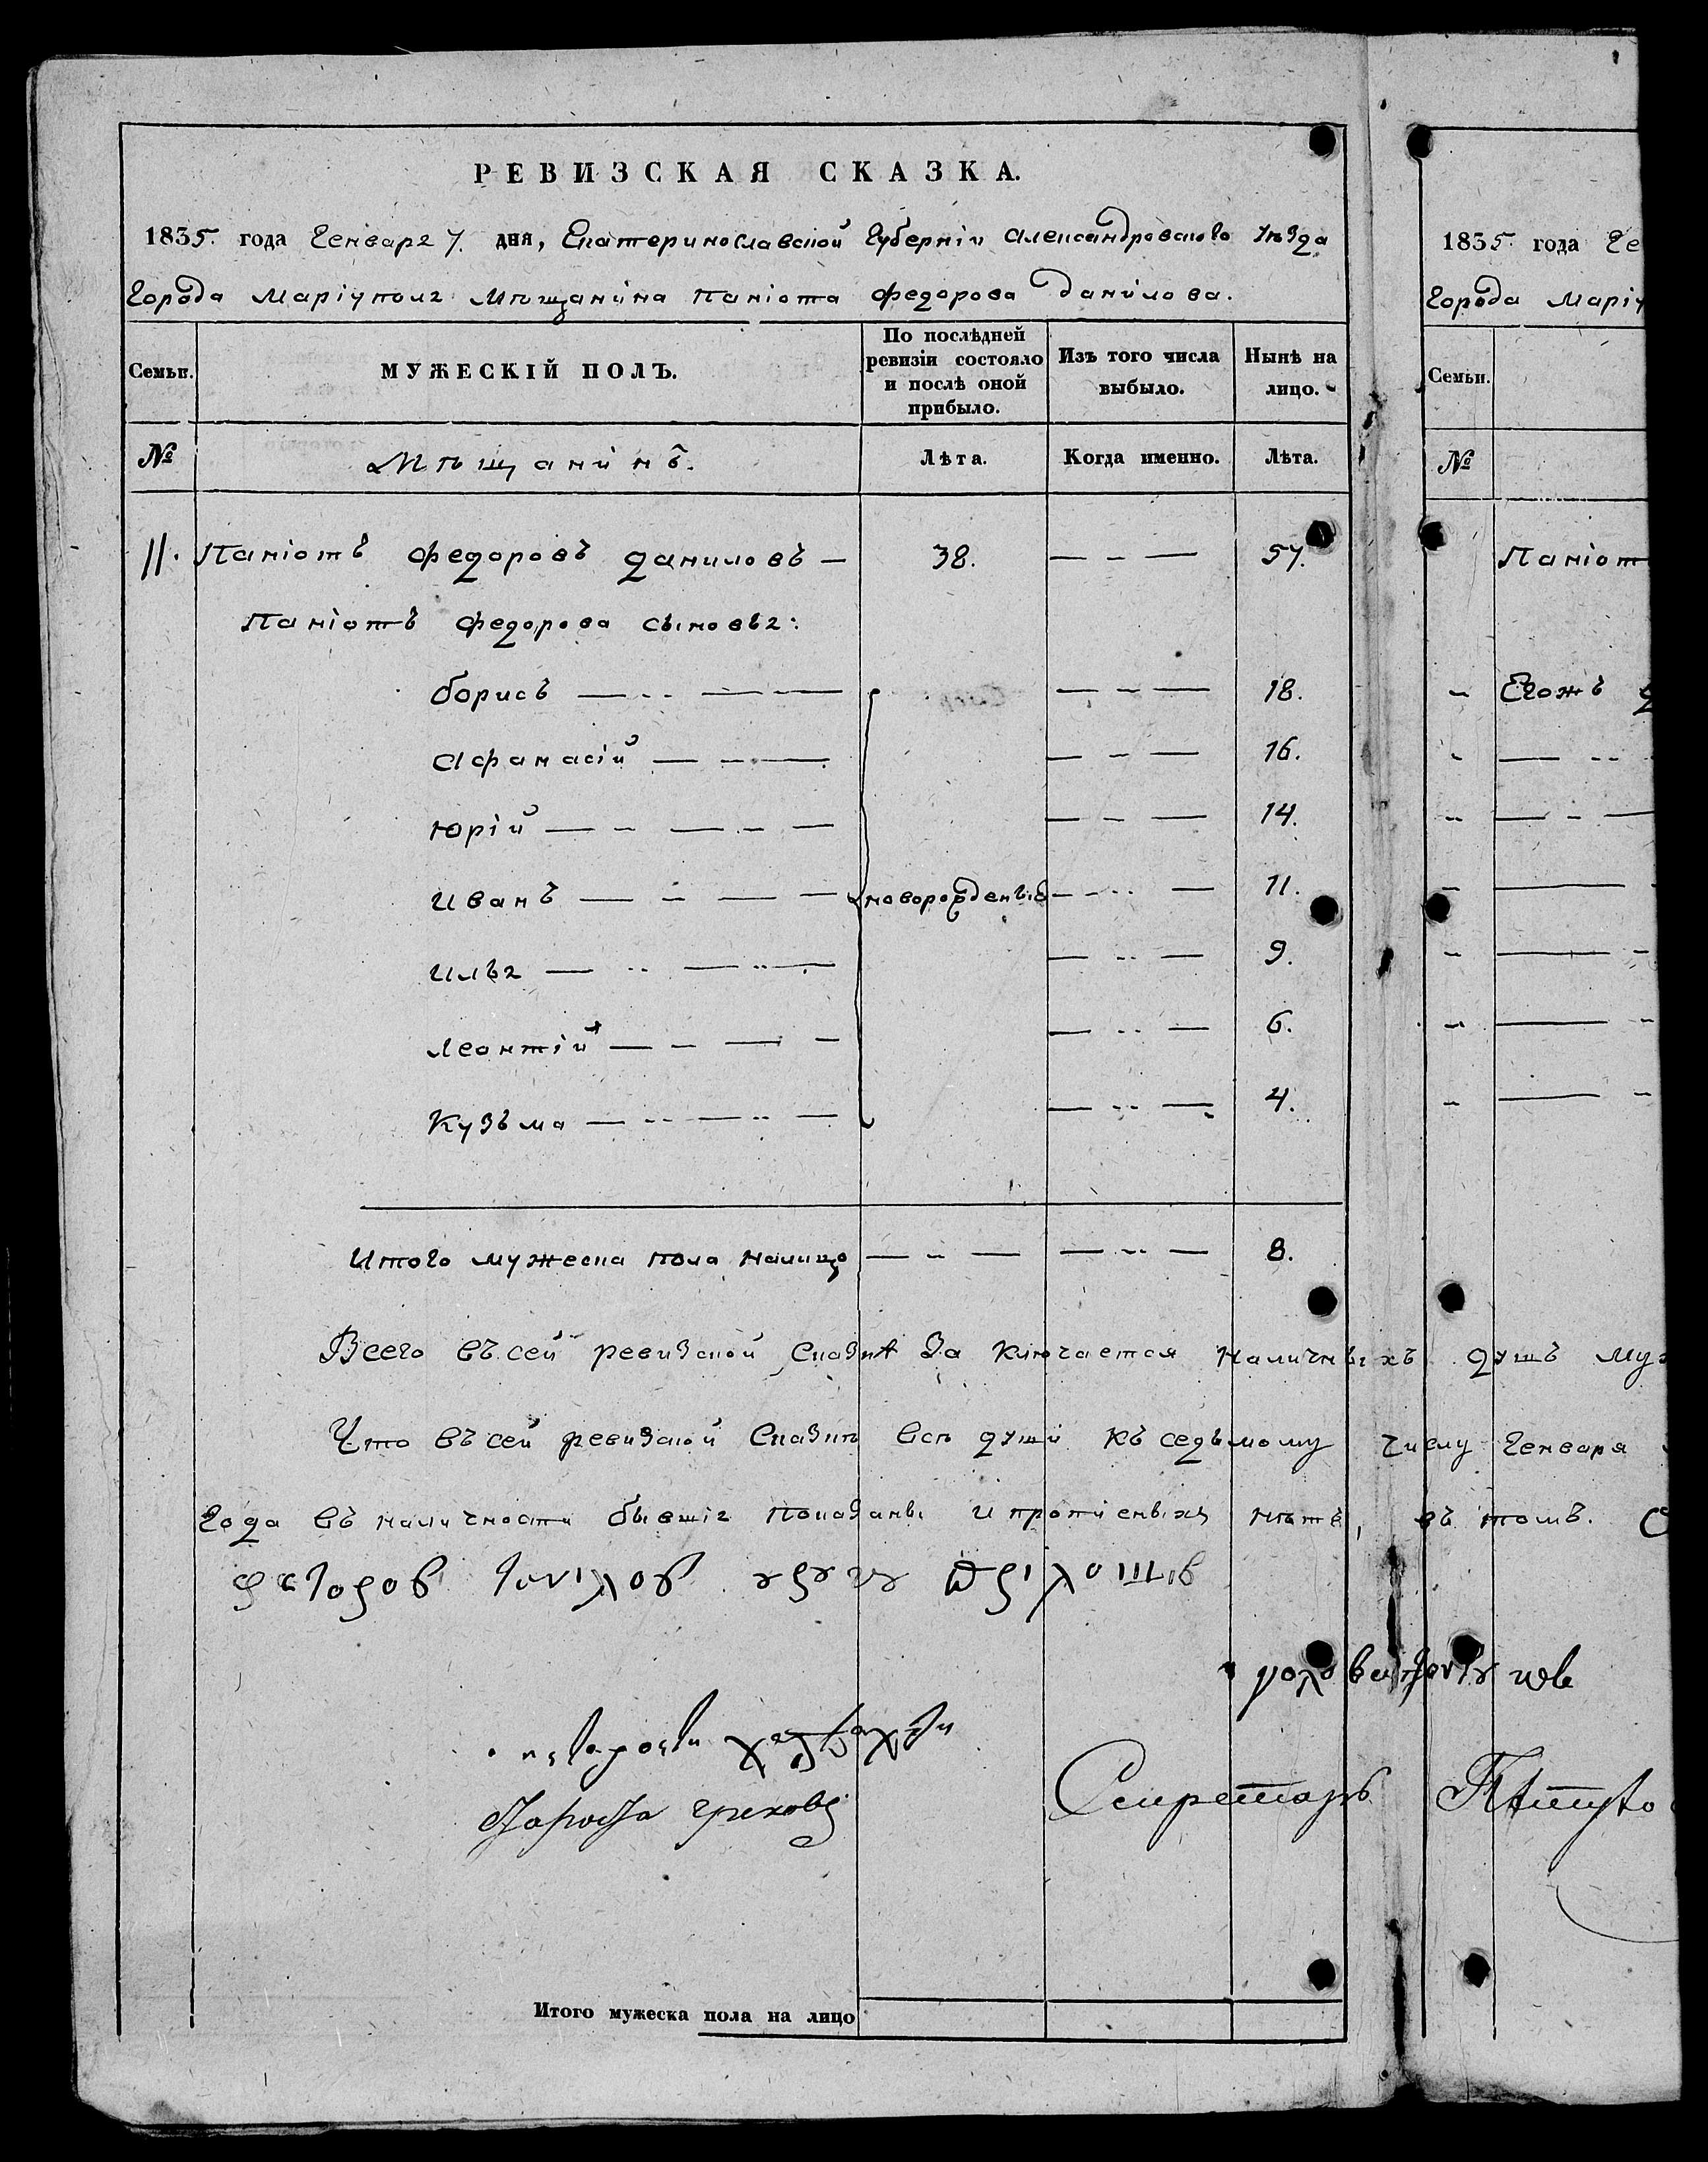 РЕВИЗСКАЯ СКАЗКА.
1835. года Генваря 7. дня, Екатеринославской Губерніи Александровского Уѣзда
города Маріуполя Мѣщанина Паніота Федорова Данилова.
Семьи. МУЖЕСКІЙ ПОЛЪ. По послѣдней ревизіи состояло и послѣ оной прибыло. Изъ того числа выбыло. Нынѣ на лицо.
№ Мѣщанинъ. Лѣта. Когда именно. Лѣта.
11. Паніотъ Федоровъ Даниловъ — 38. — - — 57.
Паніотъ Федорова сыновья:
Борисъ 18.
Афанасій 16.
Юрій 14.
Иванъ новорожденные 11.
Илья 9.
Леонтій 6.
Кузьма 4.
Итого мужеска пола налицо 8.
Всего въ сей ревизской сказкѣ заключается наличныхъ душъ муж
Что въ сей ревизской сказкѣ всѣ души къ седьмому числу Генваря
года въ наличности бывшія показаны и прописныхъ нѣтъ, въ томъ.
Староста Грековъ
Секретарь
Итого мужеска пола на лицо
1835 года Ге
города Маріу
Семьи.
№
Паніот
Егожъ